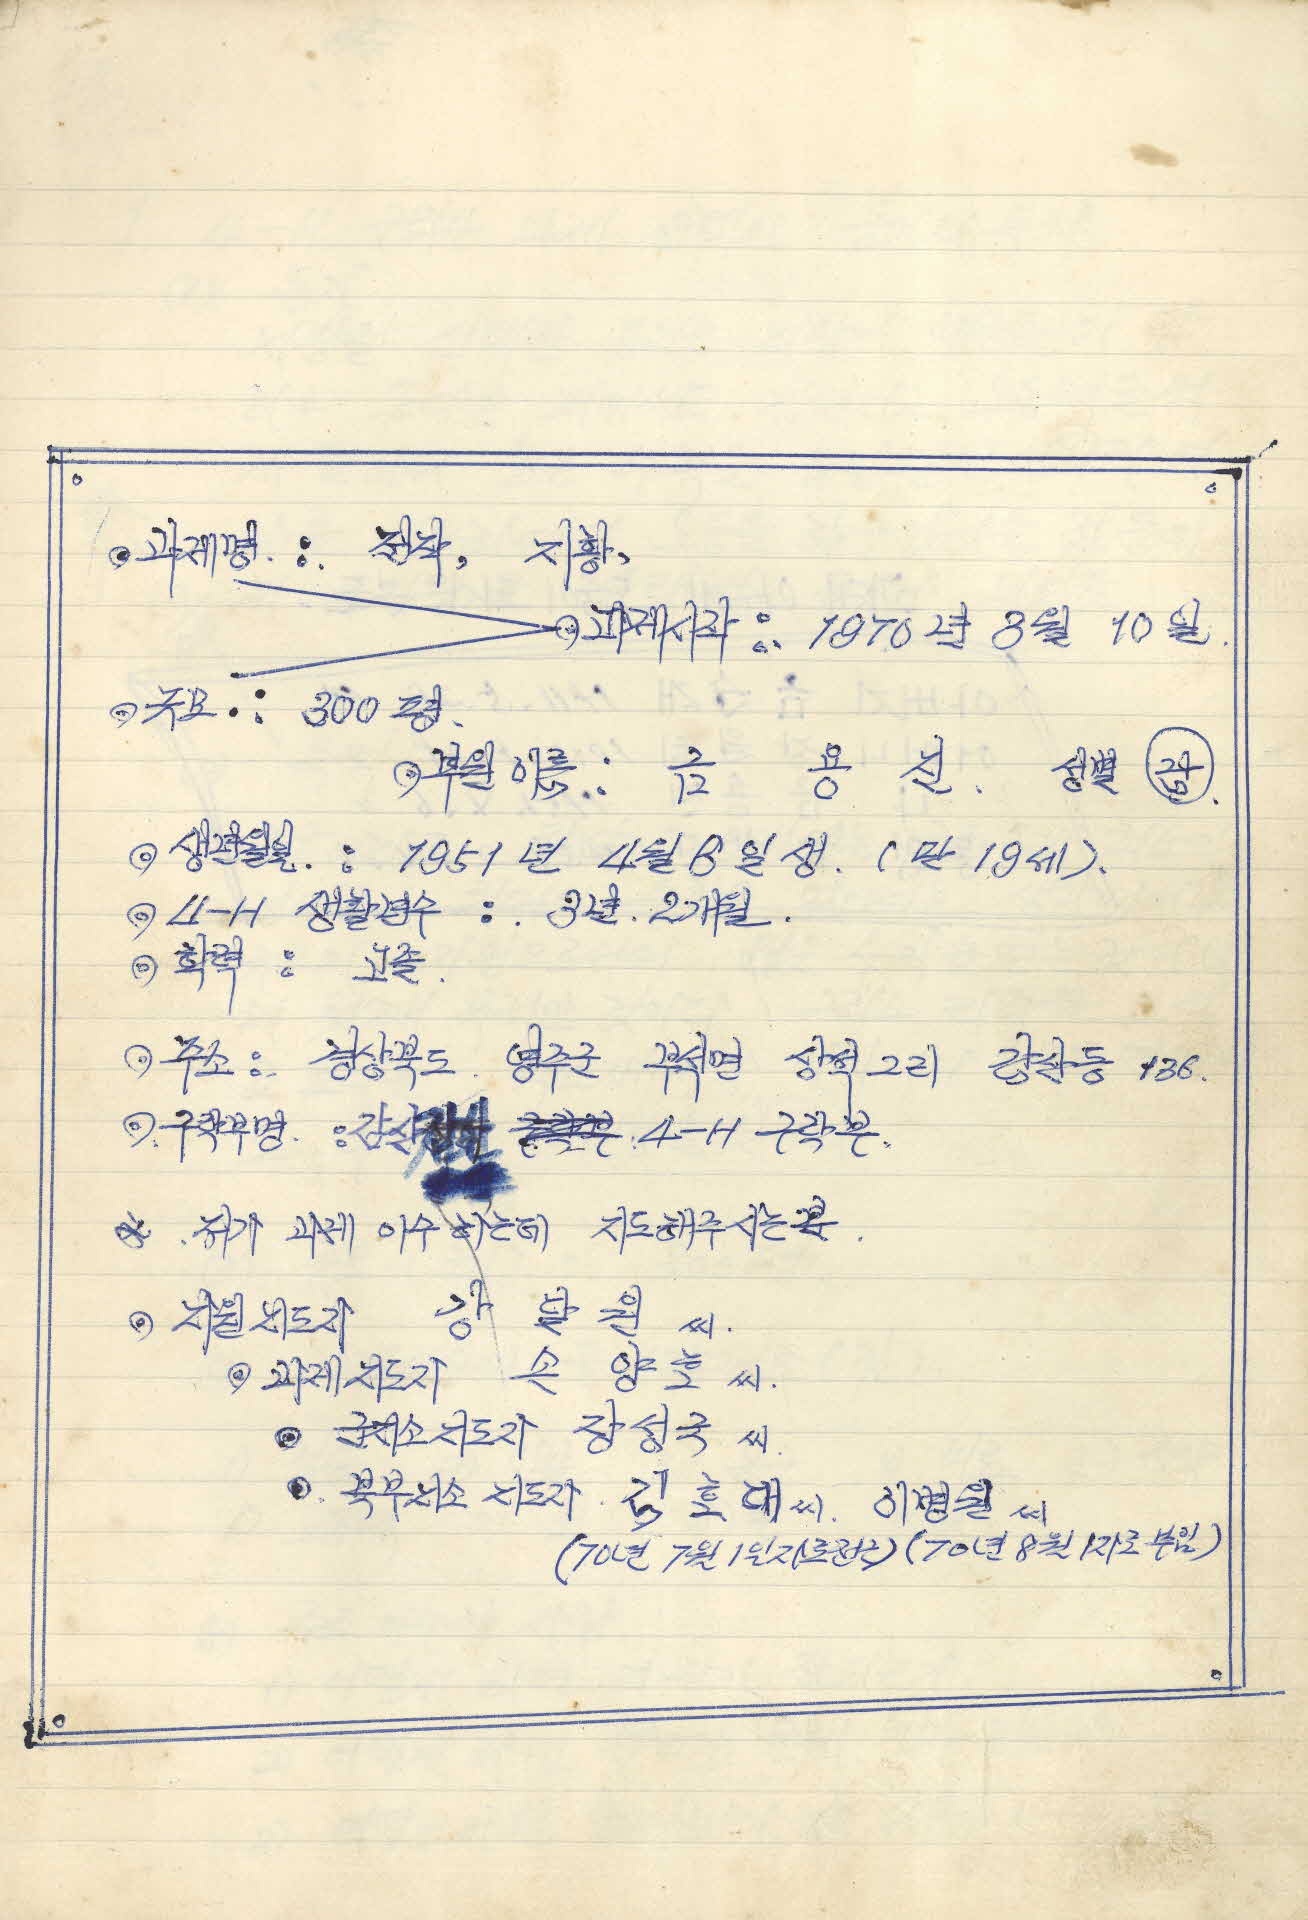 ⊙ 과제명 : 전작, 지황,
⊙ 과제시작 : 1970년 3월 10일.
⊙ 규모 : 300평.
⊙ 부원이름 : 금 용 선. 성별 남.
⊙ 생년월일. : 1951년 4월 6일생. (만 19세).
⊙ 4-H 생활년수 : 3년. 2개월.
⊙ 학력 : 고졸.
⊙ 주소 : 경상북도 영주군 부석면 상석2리 감산동 436.
⊙ 구락부명. : 감산 4-H 구락부.
※ 저가 과제 이수하는데 지도해주시는분.
⊙ 자원지도자 강 달 원 씨.
⊙ 과제지도자 손 양 호 씨.
⊙ 군지소지도자 장성국 씨.
⊙ 북부지소 지도자. 김호대씨. 이병원 씨
(70년 7월 1일자로전근) (70년 8월 1자로 부임)